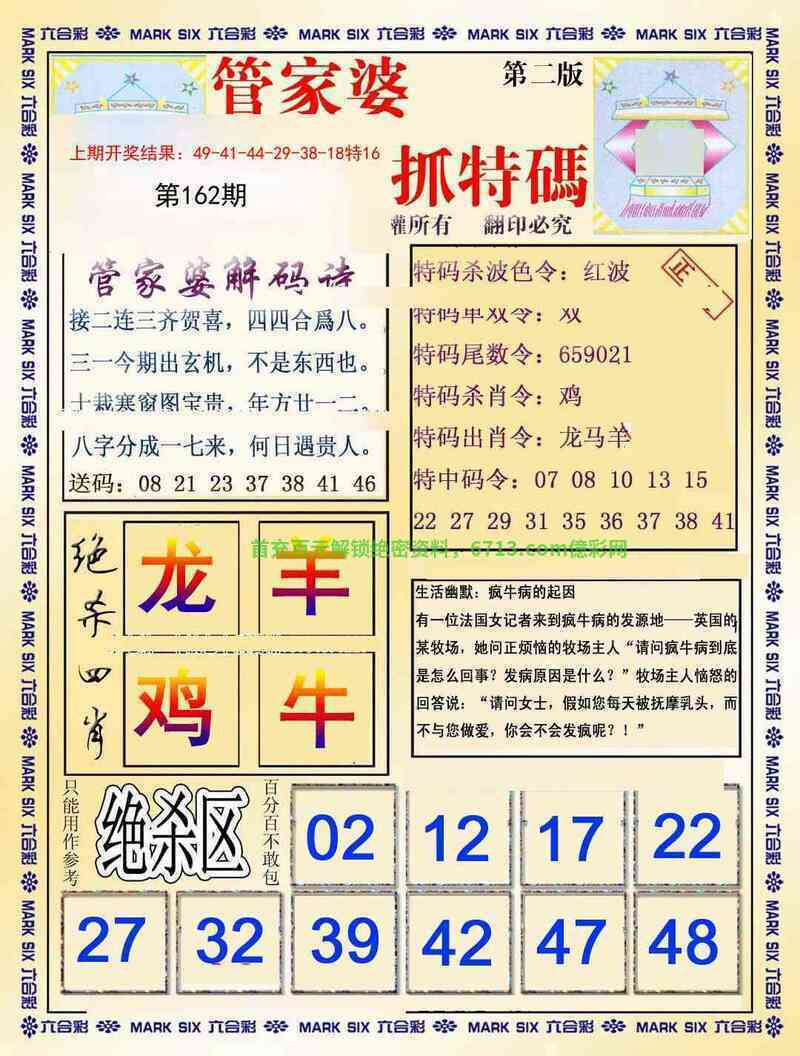 MARK SIX 六合彩 MARK SIX 六合彩 MARK SIX 六合彩 MARK SIX 六合彩
管家婆
第二版
上期开奖结果：49-41-44-29-38-18特16
第162期
抓特碼
所有 翻印必究
管家婆解码诗
接二连三齐贺喜，四四合爲八。
三一今期出玄机，不是东西也。
十栽寒窗图宝贵，年方廿一二。
八字分成一七来，何日遇贵人。
送码：08 21 23 37 38 41 46
特码杀波色令：红波
正
特码单双令：双
特码尾数令：659021
特码杀肖令：鸡
特码出肖令：龙马羊
特中码令：07 08 10 13 15
22 27 29 31 35 36 37 38 41
首充百元解锁绝密资料，6713.com億彩网
绝杀四肖
龙 羊
鸡 牛
生活幽默：疯牛病的起因
有一位法国女记者来到疯牛病的发源地——英国的
某牧场，她问正烦恼的牧场主人“请问疯牛病到底
是怎么回事？发病原因是什么？”牧场主人恼怒的
回答说：“请问女士，假如您每天被抚摩乳头，而
不与您做爱，你会不会发疯呢？！”
只能用作参考
绝杀区
百分百不敢包
02 12 17 22
27 32 39 42 47 48
六合彩 MARK SIX 六合彩 MARK SIX 六合彩 MARK SIX 六合彩 MARK SIX 六合彩